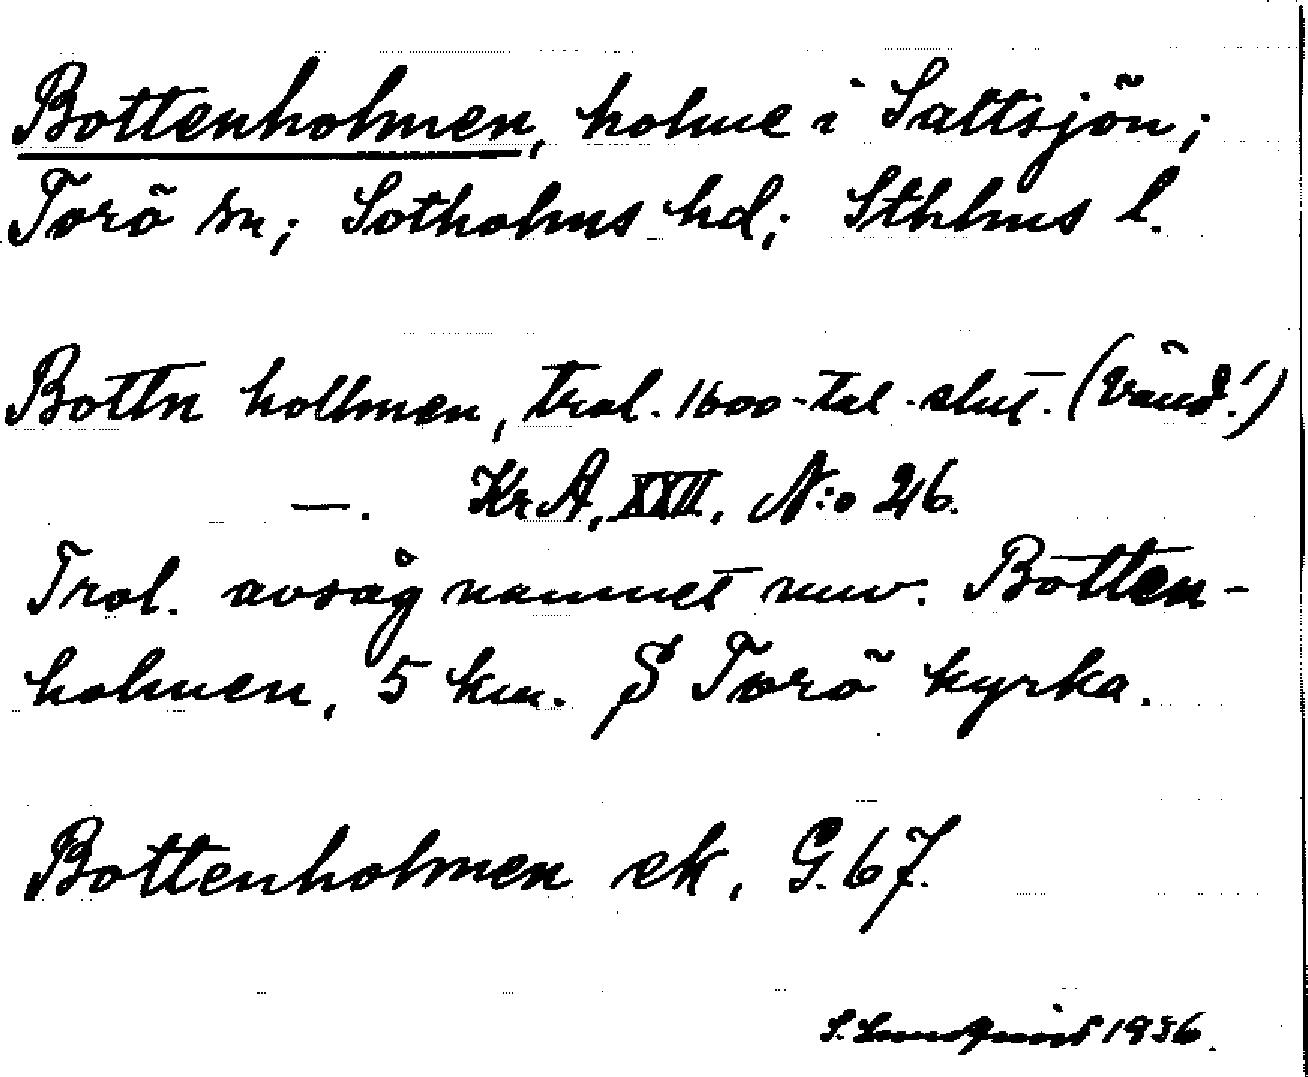 Bottenholmen, holme i Saltsjön;
Torö sn; Sotholms hd; Sthlms l.
Bottn hollmen, trol. 1600-tal. slut. (Vänd!)
—. KrA, XXII, N:o 26.
Trol. avsåg namnet nuv. Botten-
holmen, 5 km. S Torö kyrka.
Bottenholmen ek, G. 67.
S. Lundqvist 1936.